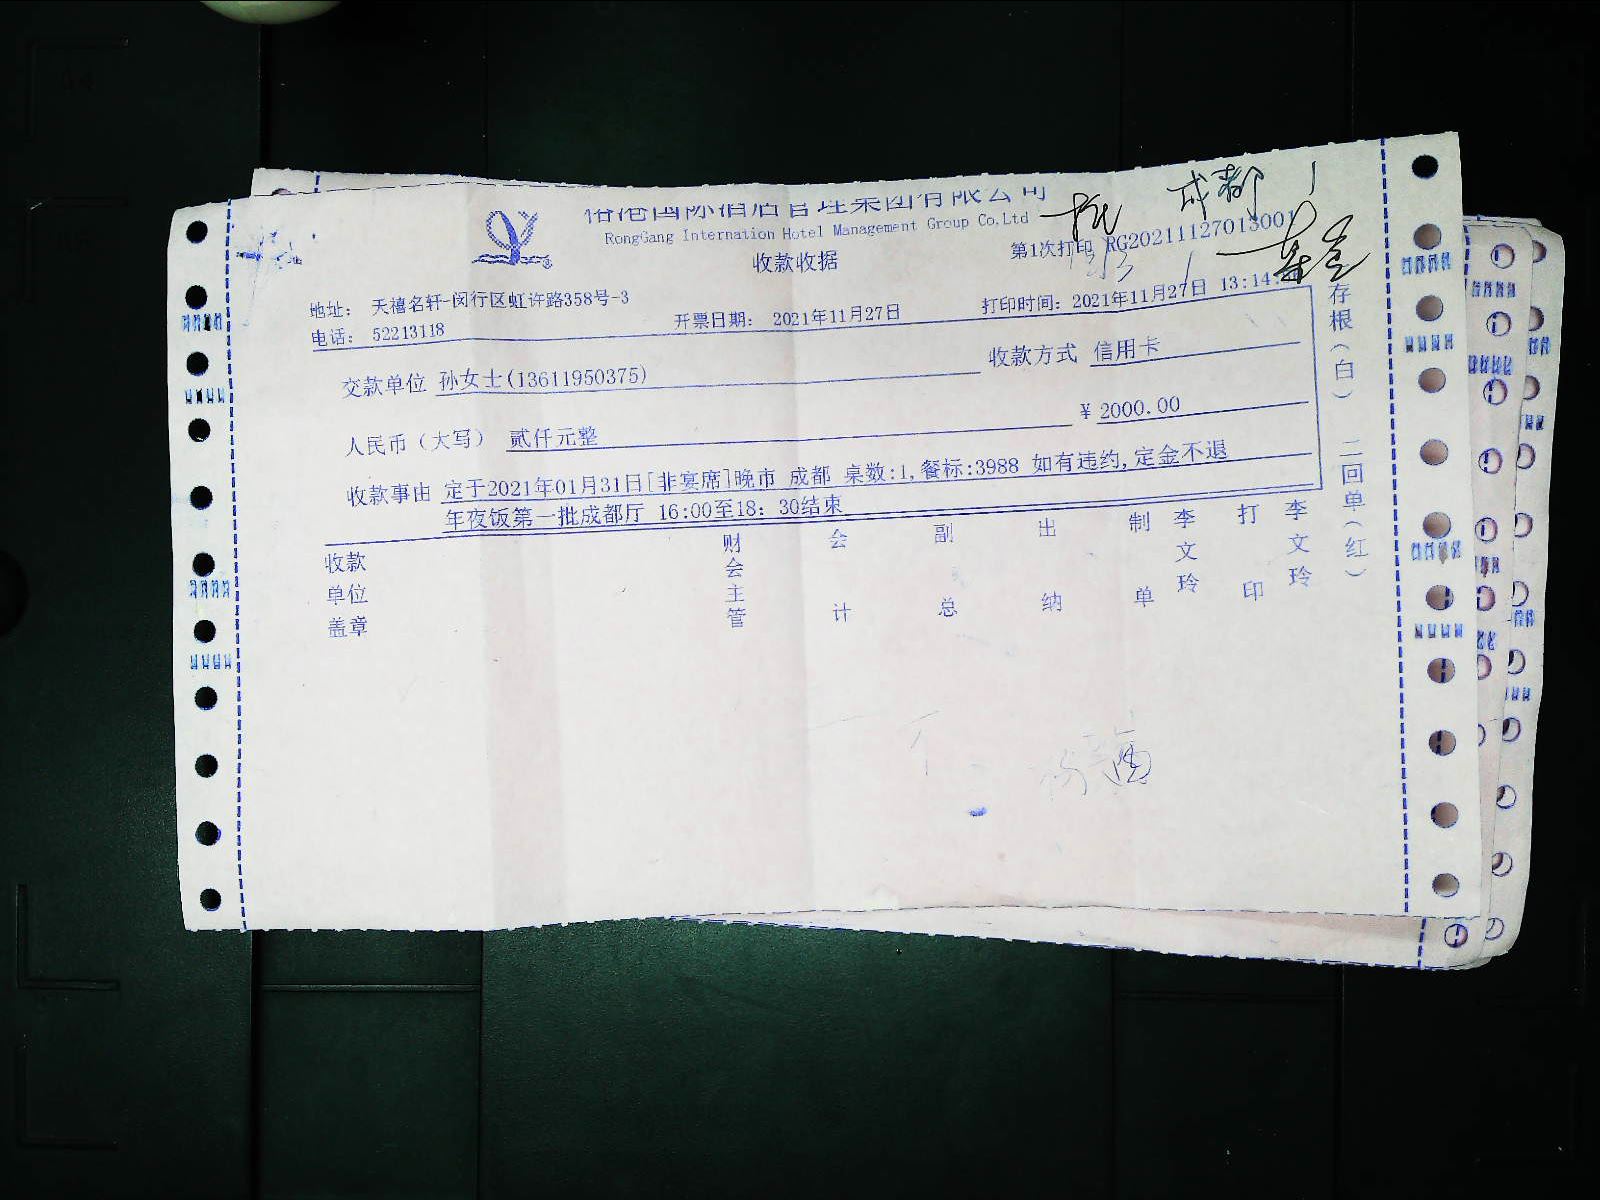 国际酒店管理集团有限公司
RongGang Internation Hotel Management Group Co,Ltd
收款收据
第1次打印 RG20211127013001
成都
一批
地址： 天禧名轩-闵行区虹许路358号-3
电话： 52213118
开票日期： 2021年11月27日
打印时间：2021年11月27日 13:14:
交款单位 孙女士(13611950375)
收款方式 信用卡
人民币（大写） 贰仟元整
¥ 2000.00
收款事由 定于2021年01月31日[非宴席]晚市 成都 桌数:1,餐标:3988 如有违约,定金不退
年夜饭第一批成都厅 16:00至18：30结束
收款单位盖章
财会主管
会计
副总
出纳
制单 李文玲
打印 李文玲
存根（白） 二回单（红）